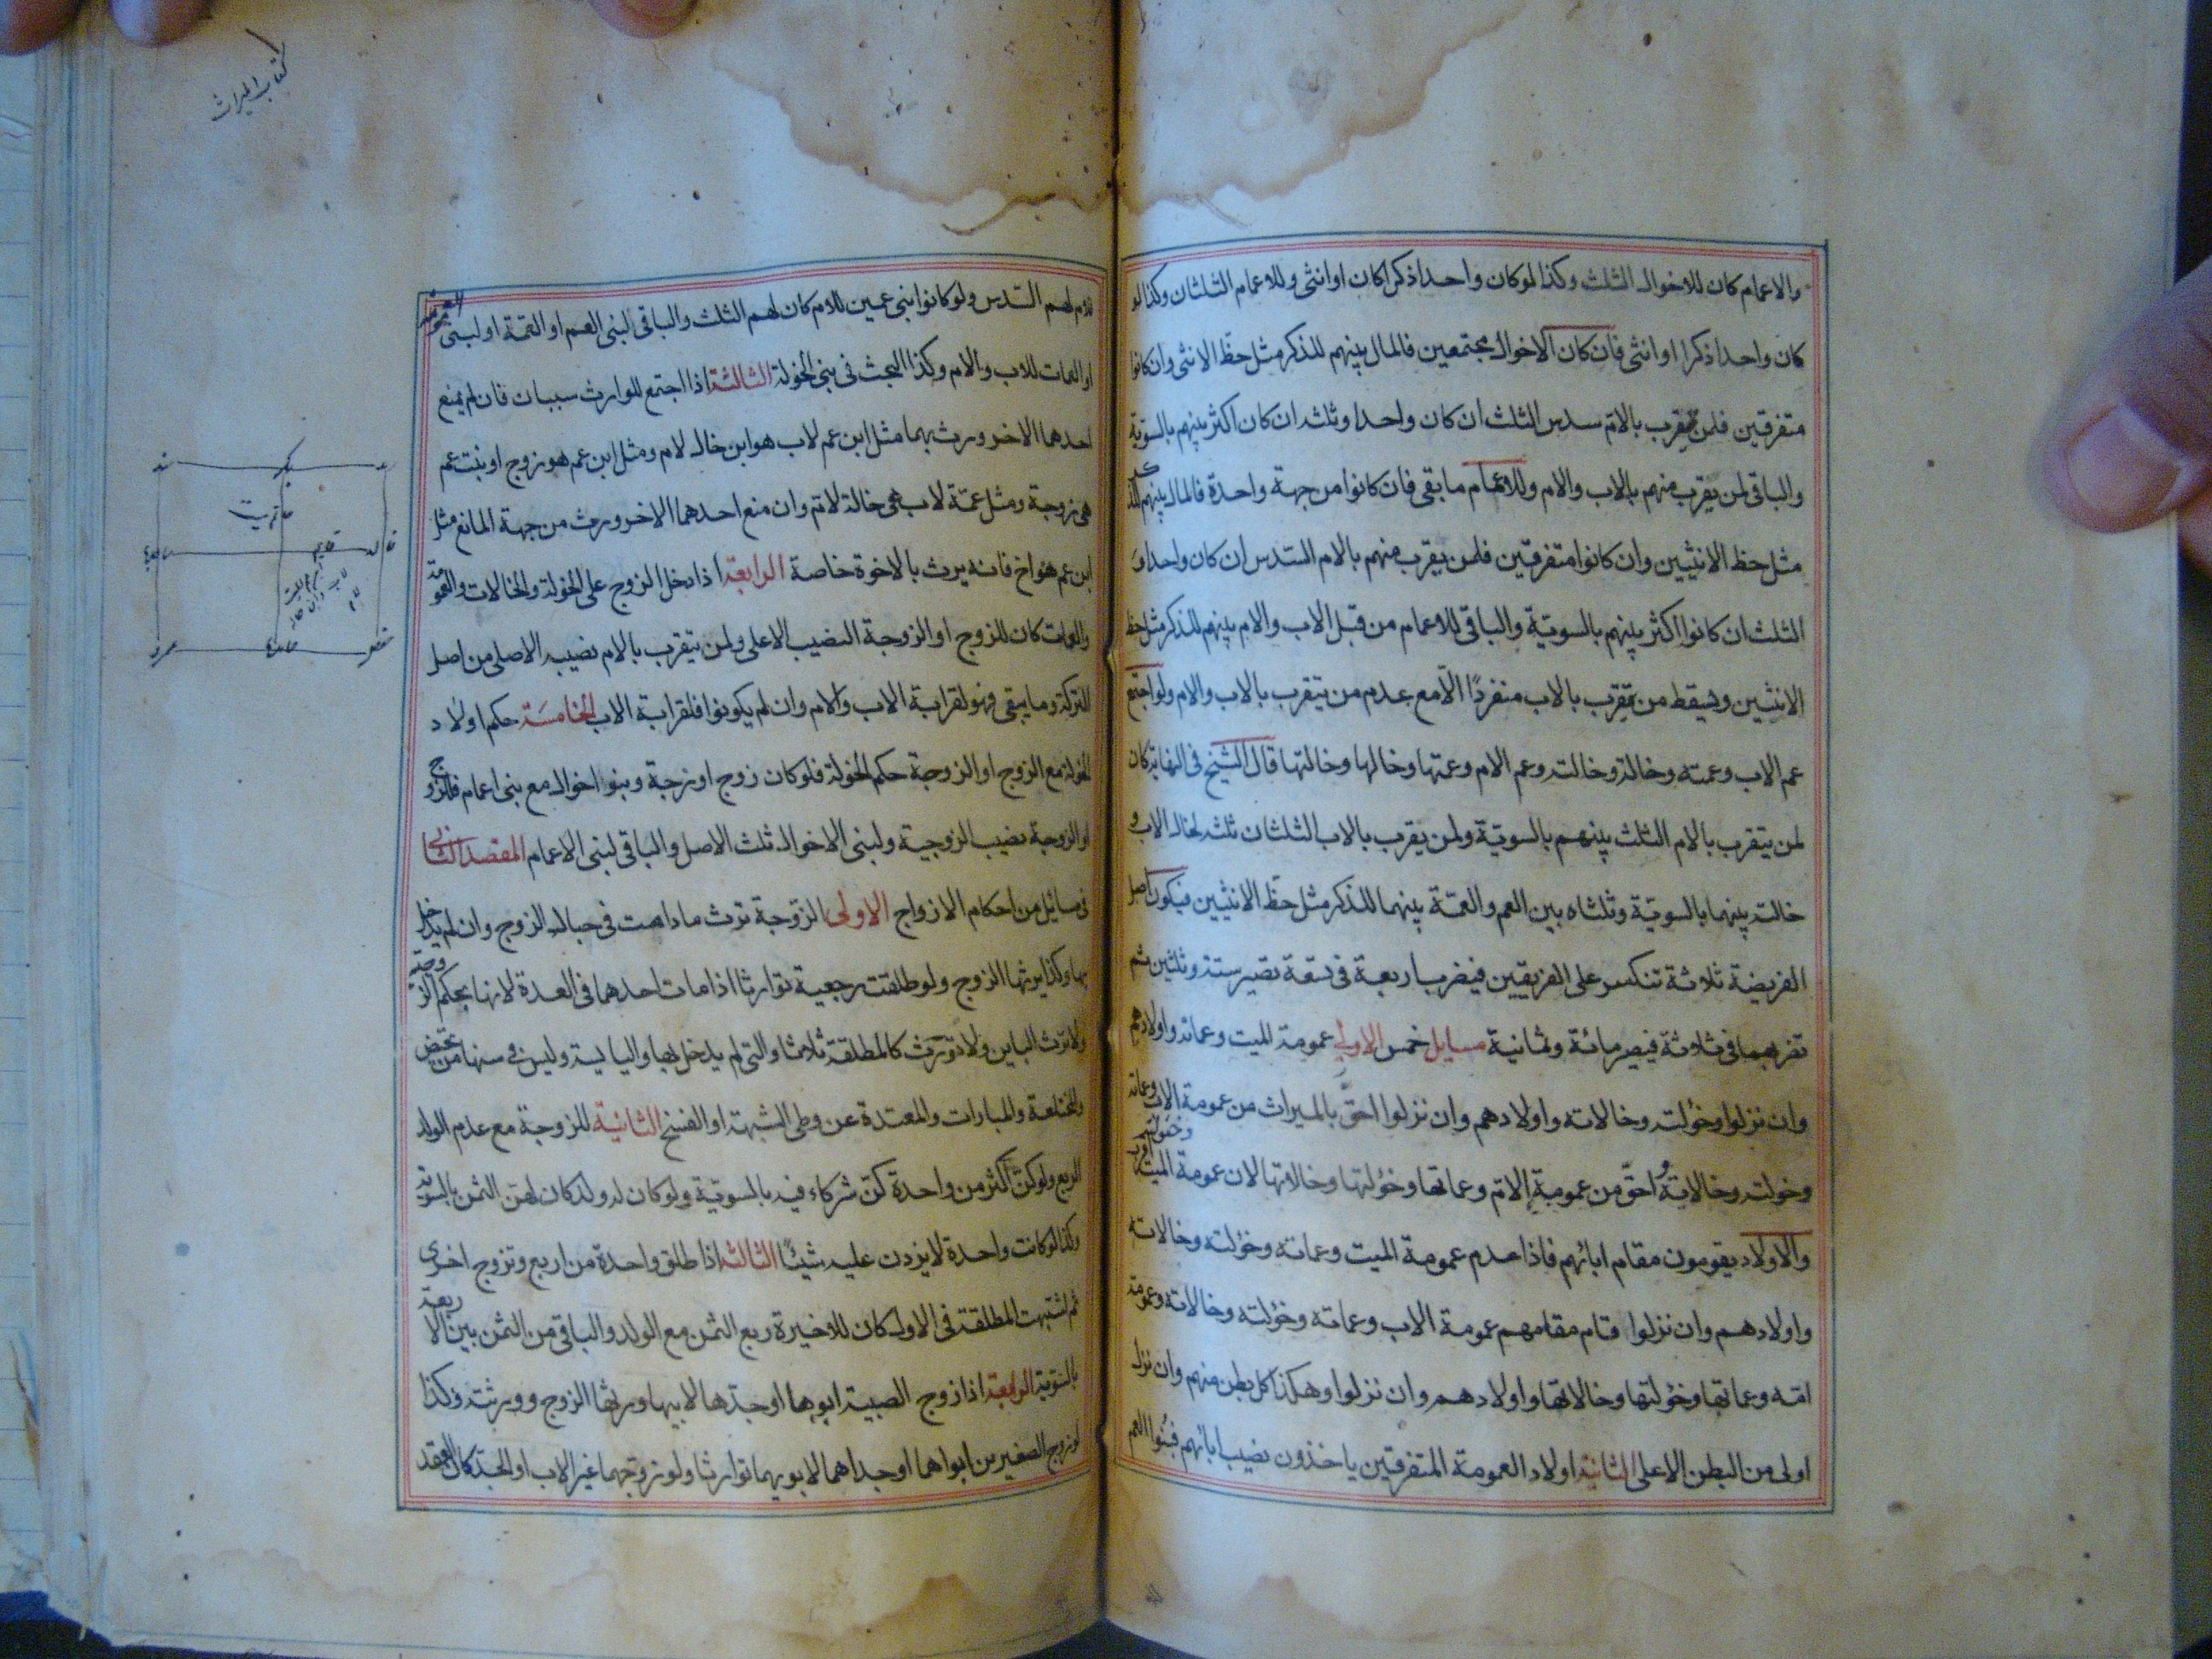 والاعمام كان للاخوال الثلث وكذا لو كان واحدا ذكرا كان او انثى وللاعمام الثلثان وكذا لو
كان واحدا ذكرا او انثى فان كان الاخوال مجتمعين فالمال بينهم للذكر مثل حظ الانثى وان كانوا
متفرقين فلمن يقرب بالام سدس الثلث ان كان واحدا وثلثه ان كان اكثر بينهم بالسوية
والباقى لمن يقرب منهم بالاب والام وللاعمام ما بقى فان كانوا من جهة واحدة فالمال بينهم للذكر
مثل حظ الانثيين وان كانوا متفرقين فلمن يقرب منهم بالام السدس ان كان واحدا و
الثلث ان كانوا اكثر بينهم بالسوية والباقى للاعمام من قبل الاب والام بينهم للذكر مثل حظ
الانثيين ويسقط من يتقرب بالاب منفردًا الا مع عدم من يتقرب بالاب والام ولو اجتمع
عم الاب وعمته وخاله وخالته وعم الام وعمتها وخالها وخالتها قال الشيخ فى النهاية كان
لمن يتقرب بالام الثلث بينهم بالسوية ولمن يقرب بالاب الثلثان ثلثه لخال الاب و
خالته بينهما بالسوية وثلثاه بين العم والعمة بينهما للذكر مثل حظ الانثيين فيكون اصل
الفريضة ثلاثة تنكسر على الفريقين فيضرب اربعة فى تسعة تصير ستة وثلثين ثم
تضربهما فى ثلاثة فيصير مائة وثمانية مسايل خمس الاولى عمومة الميت وعماته واولادهم
وان نزلوا وخؤلته وخالاته واولادهم وان نزلوا احق بالميراث من عمومة الاب وعماته
وخولته وخالاته واحق من عمومة الام وعماتها وخؤلتها وخالاتها لان عمومة الميت وخؤلته اقرب
والاولاد يقومون مقام ابائهم فاذا عدم عمومة الميت وعماته وخؤلته وخالاته
واولادهم وان نزلوا قام مقامهم عمومة الاب وعماته وخؤلته وخالاته وعمومة
امه وعماتها وخؤلتها وخالاتها واولادهم وان نزلوا وهكذا كل بطن منهم وان نزل
اولى من البطن الاعلى الثانية اولاد العمومة المتفرقين ياخذون نصيب ابائهم فبنوا العم
كتاب الميراث
للام لهم السدس ولو كانوا بنى عمين للام كان لهم الثلث والباقى لبنى العم او العمة او لبنى
او العمات للاب والام وكذا البحث فى بنى الخولة الثالثة اذا اجتمع للوارث سببان فان لم يمنع
احدهما الاخر ورث بهما مثل ابن عم لاب هو ابن خال لام ومثل ابن عم هو زوج او بنت عم
هى زوجة ومثل عمة لاب هى خالة لام وان منع احدهما الاخر ورث من جهة المانع مثل
ابن عم هو اخ فانه يرث بالاخوة خاصة الرابعة اذا دخل الزوج على الخولة والخالات والعمومة
والعمات كان للزوج او الزوجة النصيب الاعلى ولمن يتقرب بالام نصيبه الاصلى من اصل
التركة وما يبقى فهو لقرابة الاب والام وان لم يكونوا فلقرابة الاب الخامسة حكم اولاد
الخولة مع الزوج او الزوجة حكم الخولة فلو كان زوج او زوجة وبنوا اخوال مع بنى اعمام فللزوج
او الزوجة نصيب الزوجية ولبنى الاخوال ثلث الاصل والباقى لبنى الاعمام المقصد الثانى
فى مسائل من احكام الازواج الاولى الزوجة ترث ما دامت فى حبال الزوج وان لم يدخل
بها وكذا يرثها الزوج ولو طلقت رجعية توارثا اذا مات احدهما فى العدة لانها بحكم الزوجية
ولا ترث الباين ولا تورث كالمطلقة ثلاثا والتى لم يدخل بها واليايسة وليس فى سنها من تحيض
والمختلعة والمبارات والمعتدة عن وطى الشبهة او الفسخ الثانية للزوجة مع عدم الولد
الربع ولو كن اكثر من واحدة كن شركاء فيه بالسوية ولو كان له ولد كان لهن الثمن بالسوية
وكذا لو كانت واحدة لا يزدن عليه شيئًا الثالثة اذا طلق واحدة من اربع وتزوج اخرى
ثم اشتبهت المطلقة فى الاول كان للاخيرة ربع الثمن مع الولد والباقى من الثمن بين الاربعة
بالسوية الرابعة اذا زوج الصبية ابوها او جدها لابيها ورثها الزوج وورثته وكذا
لو زوج الصغيرين ابواهما او جداهما لابويهما توارثا ولو زوجهما غير الاب او الجد كان العقد